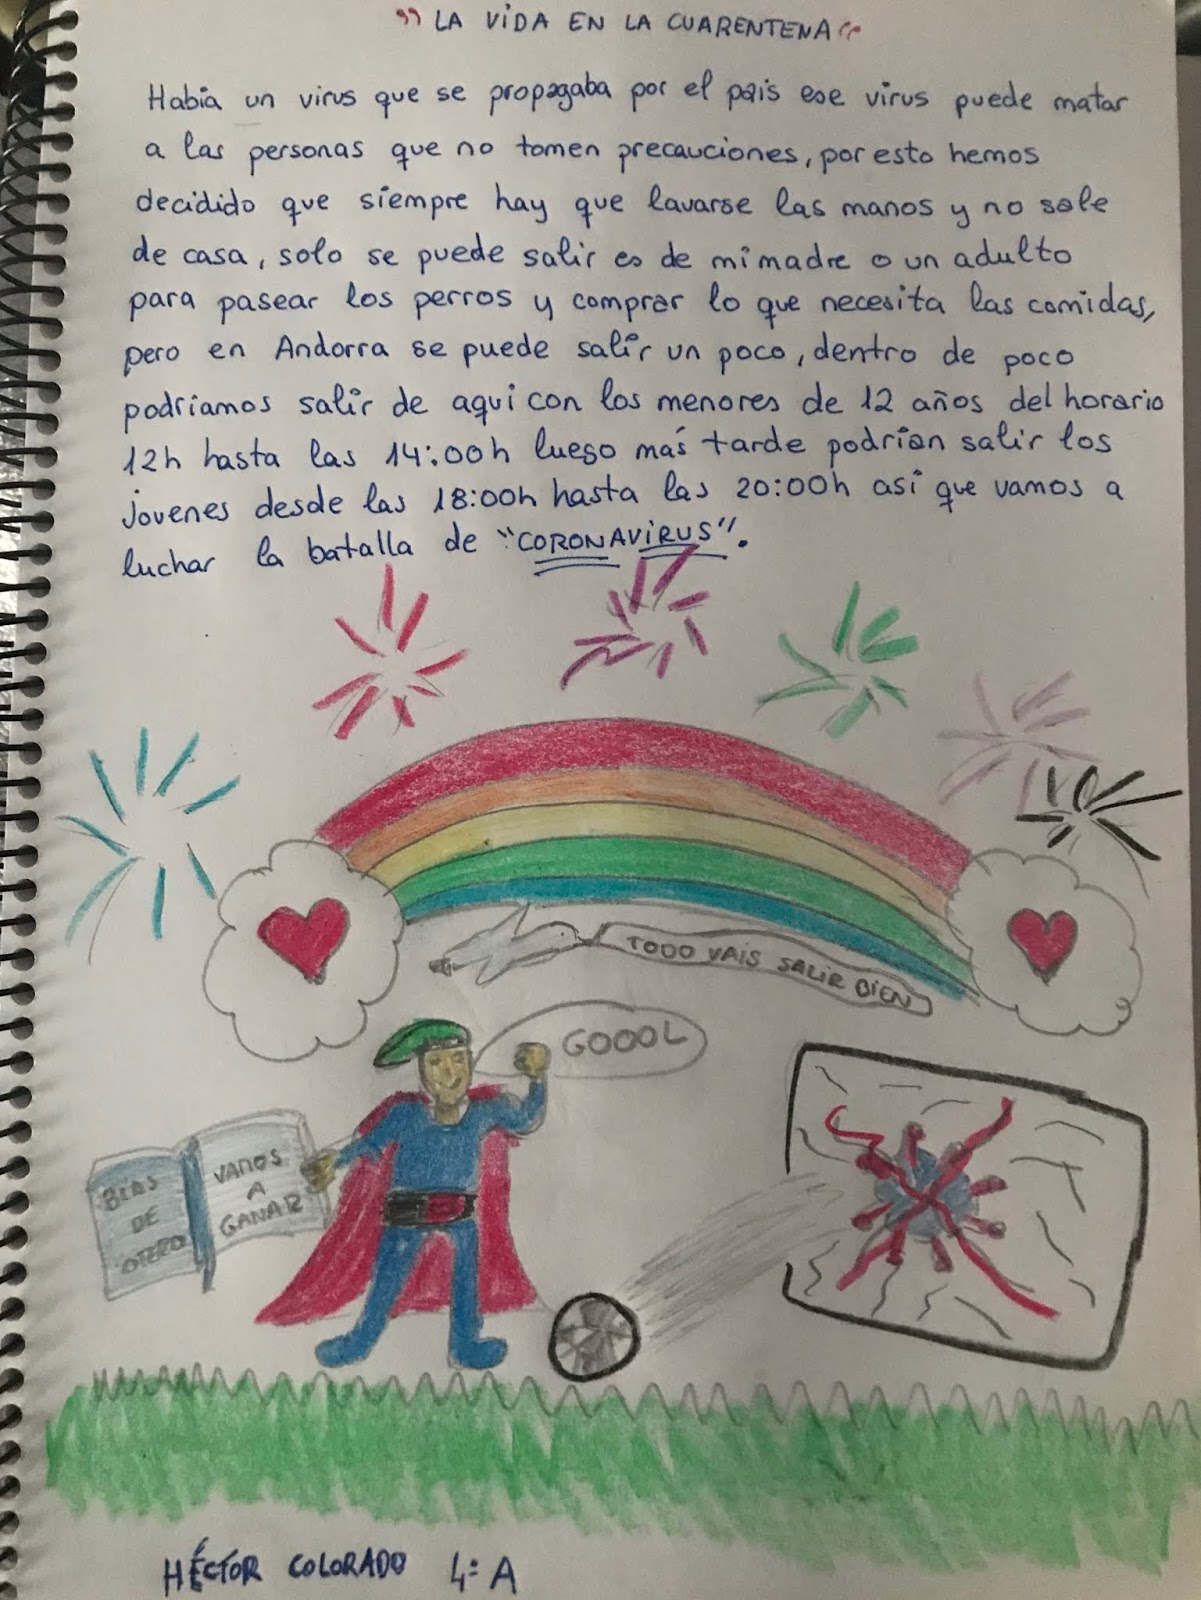 ” LA VIDA EN LA CUARENTENA “
Había un virus que se propagaba por el pais ese virus puede matar
a las personas que no tomen precauciones, por esto hemos
decidido que siempre hay que lavarse las manos y no sale
de casa, solo se puede salir es de mi madre o un adulto
para pasear los perros y comprar lo que necesita las comidas,
pero en Andorra se puede salir un poco, dentro de poco
podríamos salir de aqui con los menores de 12 años del horario
12h hasta las 14:00h luego más tarde podrían salir los
jovenes desde las 18:00h hasta las 20:00h así que vamos a
luchar la batalla de "CORONAVIRUS".
TODO VAIS SALIR BIEN
GOOOL
BLAS
DE
OTERO
VAMOS
A
GANAR
HÉCTOR COLORADO 4º A